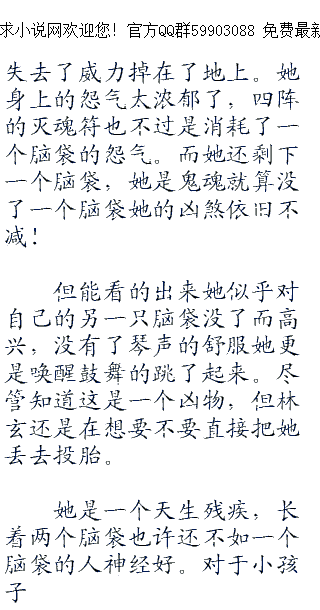 求小说网欢迎您！官方QQ群59903088 免费最新
失去了威力掉在了地上。她
身上的怨气太浓郁了，四阵
的灭魂符也不过是消耗了一
个脑袋的怨气。而她还剩下
一个脑袋，她是鬼魂就算没
了一个脑袋她的凶煞依旧不
减！
但能看的出来她似乎对
自己的另一只脑袋没了而高
兴，没有了琴声的舒服她更
是唤醒鼓舞的跳了起来。尽
管知道这是一个凶物，但林
玄还是在想要不要直接把她
丢去投胎。
她是一个天生残疾，长
着两个脑袋也许还不如一个
脑袋的人神经好。对于小孩
子